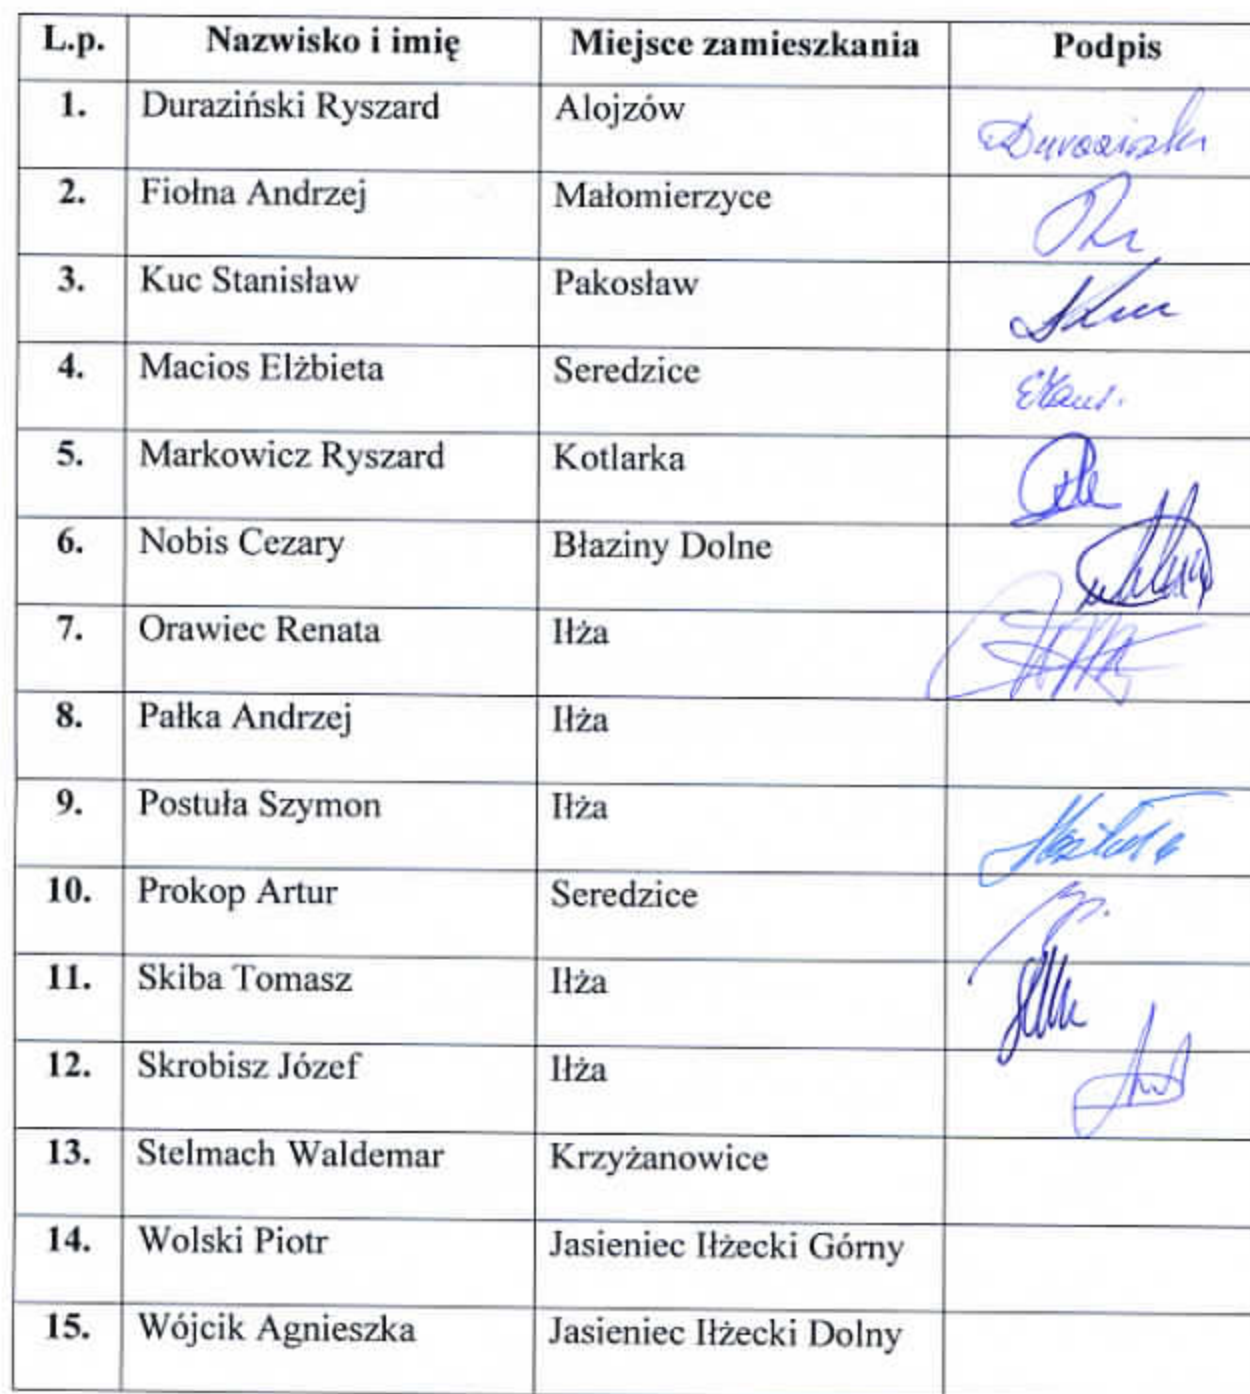 L.p. Nazwisko i imię Miejsce zamieszkania Podpis
1. Duraziński Ryszard Alojzów Duraziński
2. Fiołna Andrzej Małomierzyce
3. Kuc Stanisław Pakosław
4. Macios Elżbieta Seredzice
5. Markowicz Ryszard Kotlarka
6. Nobis Cezary Błaziny Dolne
7. Orawiec Renata Iłża
8. Pałka Andrzej Iłża
9. Postuła Szymon Iłża
10. Prokop Artur Seredzice
11. Skiba Tomasz Iłża
12. Skrobisz Józef Iłża
13. Stelmach Waldemar Krzyżanowice
14. Wolski Piotr Jasieniec Iłżecki Górny
15. Wójcik Agnieszka Jasieniec Iłżecki Dolny